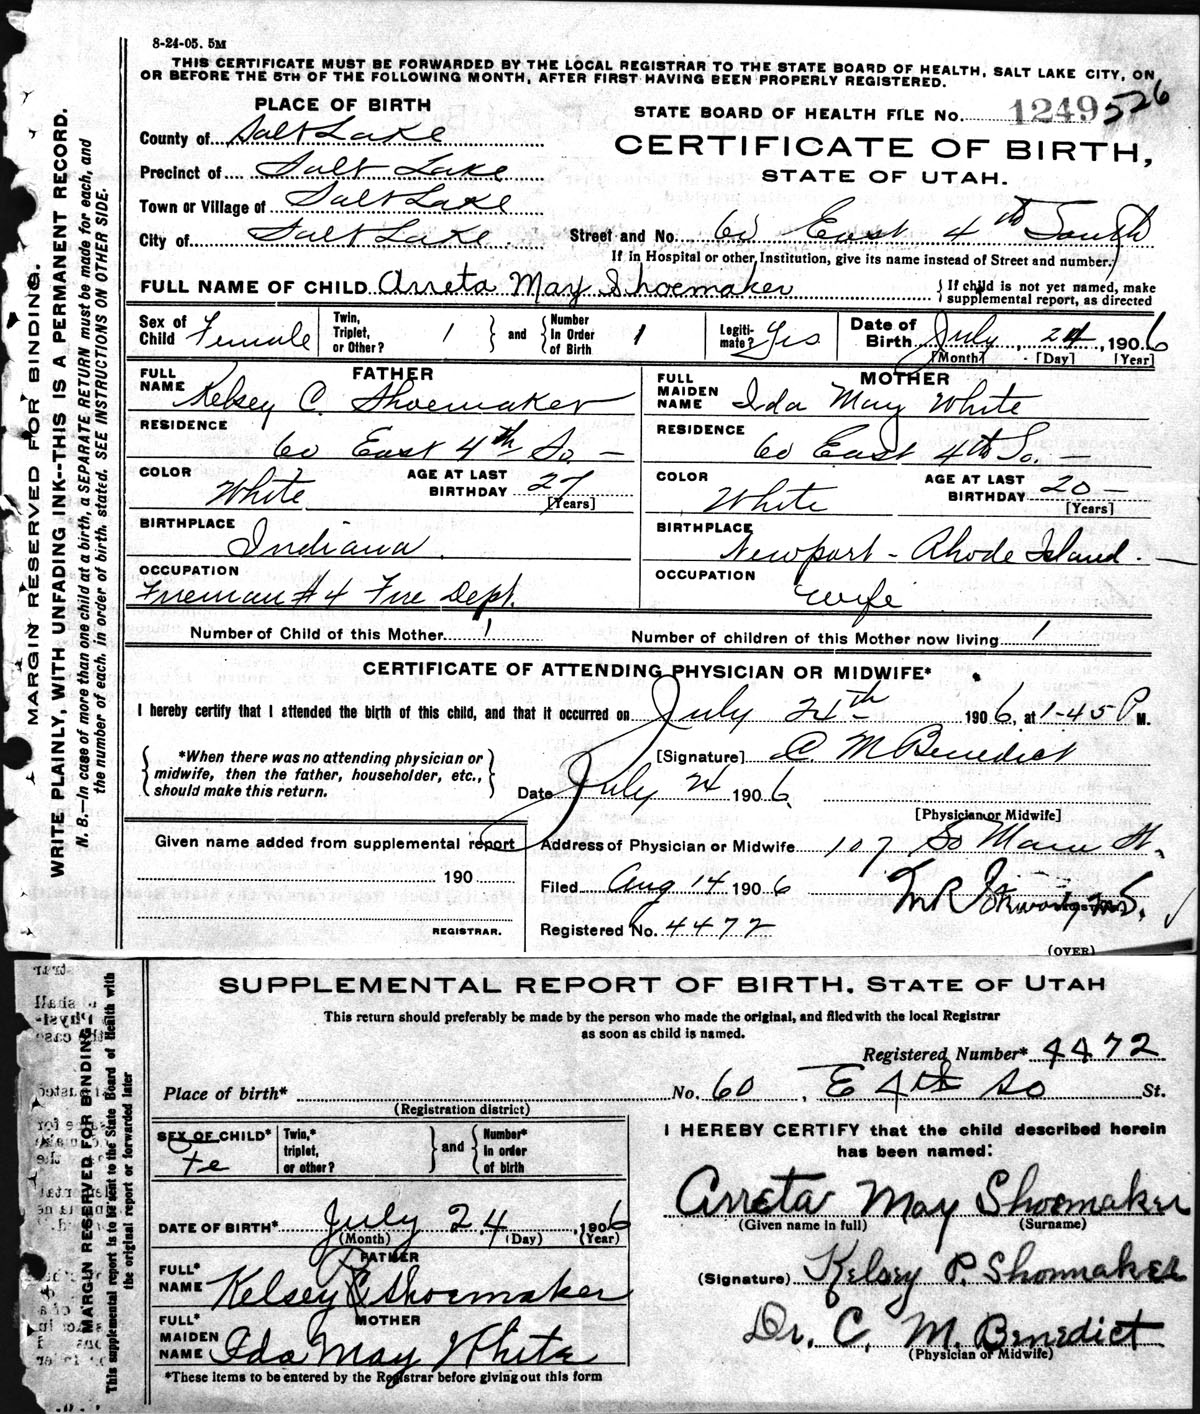 8-24-05. 5M
THIS CERTIFICATE MUST BE FORWARDED BY THE LOCAL REGISTRAR TO THE STATE BOARD OF HEALTH, SALT LAKE CITY, ON
OR BEFORE THE 5TH OF THE FOLLOWING MONTH, AFTER FIRST HAVING BEEN PROPERLY REGISTERED.
MARGIN RESERVED FOR BINDING.
WRITE PLAINLY, WITH UNFADING INK--THIS IS A PERMANENT RECORD.
N. B.--In case of more than one child at a birth, a SEPARATE RETURN must be made for each, and
the number of each, in order of birth, stated. SEE INSTRUCTIONS ON OTHER SIDE.
PLACE OF BIRTH
STATE BOARD OF HEALTH FILE No. 1249 526
County of Salt Lake
CERTIFICATE OF BIRTH,
Precinct of Salt Lake
STATE OF UTAH.
Town or Village of Salt Lake
City of Salt Lake Street and No. 60 East 4th South
If in Hospital or other Institution, give its name instead of Street and number.
FULL NAME OF CHILD Arreta May Shoemaker
If child is not yet named, make
supplemental report, as directed
Sex of Child Female
Twin, Triplet, or Other? 1 and Number In Order of Birth 1
Legitimate? Yes
Date of Birth July 24, 1906
[Month] [Day] [Year]
FATHER
FULL NAME Kelsey C. Shoemaker
RESIDENCE
60 East 4th So. —
COLOR White AGE AT LAST BIRTHDAY 27
[Years]
BIRTHPLACE
Indiana.
OCCUPATION
Fireman #4 Fire Dept.
MOTHER
FULL MAIDEN NAME Ida May White
RESIDENCE
60 East 4th So. —
COLOR White AGE AT LAST BIRTHDAY 20 —
[Years]
BIRTHPLACE
Newport - Rhode Island. —
OCCUPATION
Wife
Number of Child of this Mother 1 Number of children of this Mother now living 1
CERTIFICATE OF ATTENDING PHYSICIAN OR MIDWIFE*
I hereby certify that I attended the birth of this child, and that it occurred on July 24th 1906, at 1-45 P M.
*When there was no attending physician or
midwife, then the father, householder, etc.,
should make this return.
[Signature] C. M Benedict
Date July 24 1906.
[Physician or Midwife]
Given name added from supplemental report
190
REGISTRAR.
Address of Physician or Midwife 107 So Main St.
Filed Aug 14 1906
Registered No. 4472
(OVER)
SUPPLEMENTAL REPORT OF BIRTH, STATE OF UTAH
This return should preferably be made by the person who made the original, and filed with the local Registrar
as soon as child is named.
MARGIN RESERVED FOR BINDING
This supplemental report is to be sent to the State Board of Health with
the original report or forwarded later
Registered Number* 4472
Place of birth* No. 60, E 4th So St.
(Registration district)
SEX OF CHILD* Fe
Twin,* triplet, or other? and Number* In order of birth
I HEREBY CERTIFY that the child described herein
has been named:
Arreta May Shoemaker
(Given name in full) (Surname)
DATE OF BIRTH* July 24, 1906
(Month) (Day) (Year)
FATHER
FULL* NAME Kelsey Shoemaker
(Signature) Kelsey P. Shoemaker
MOTHER
FULL* MAIDEN NAME Ida May White
Dr. C. M. Benedict
(Physician or Midwife)
*These items to be entered by the Registrar before giving out this form